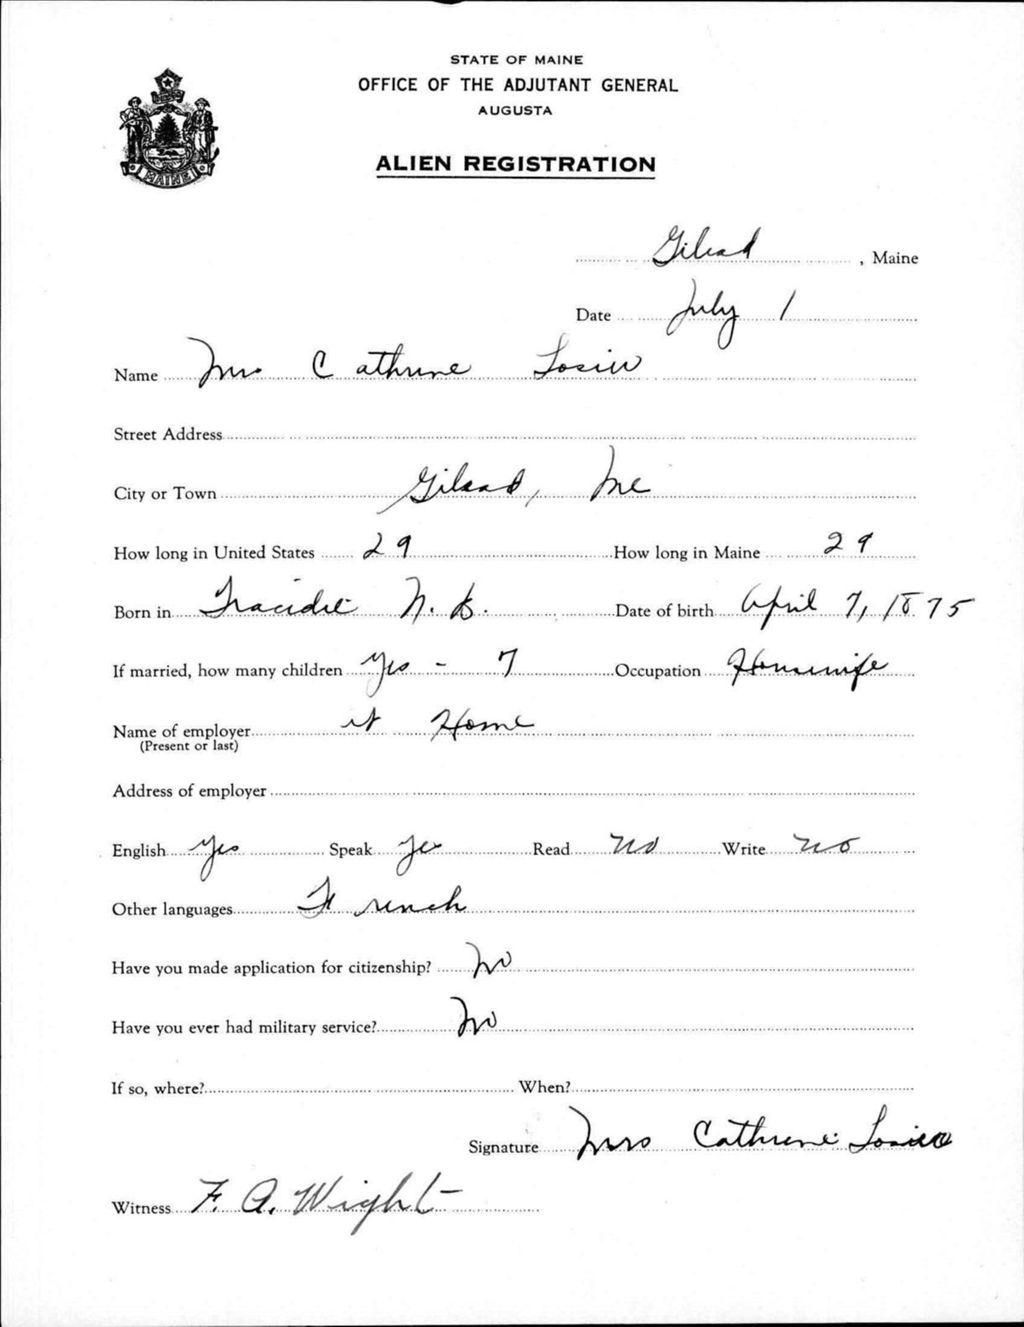 STATE OF MAINE
OFFICE OF THE ADJUTANT GENERAL
AUGUSTA
ALIEN REGISTRATION
MAINE
Gilead, Maine
Date July 1
Name Mrs Cathrine
Street Address
City or Town Gilead, Me
How long in United States 29 How long in Maine 29
Born in Tracidie N. B. Date of birth April 7, 1875
If married, how many children Yes - 7 Occupation Housewife
Name of employer at Home
(Present or last)
Address of employer
English Yes Speak Yes Read No Write No
Other languages French
Have you made application for citizenship? No
Have you ever had military service? No
If so, where? When?
Signature Mrs Cathrine
Witness F. A. Wight